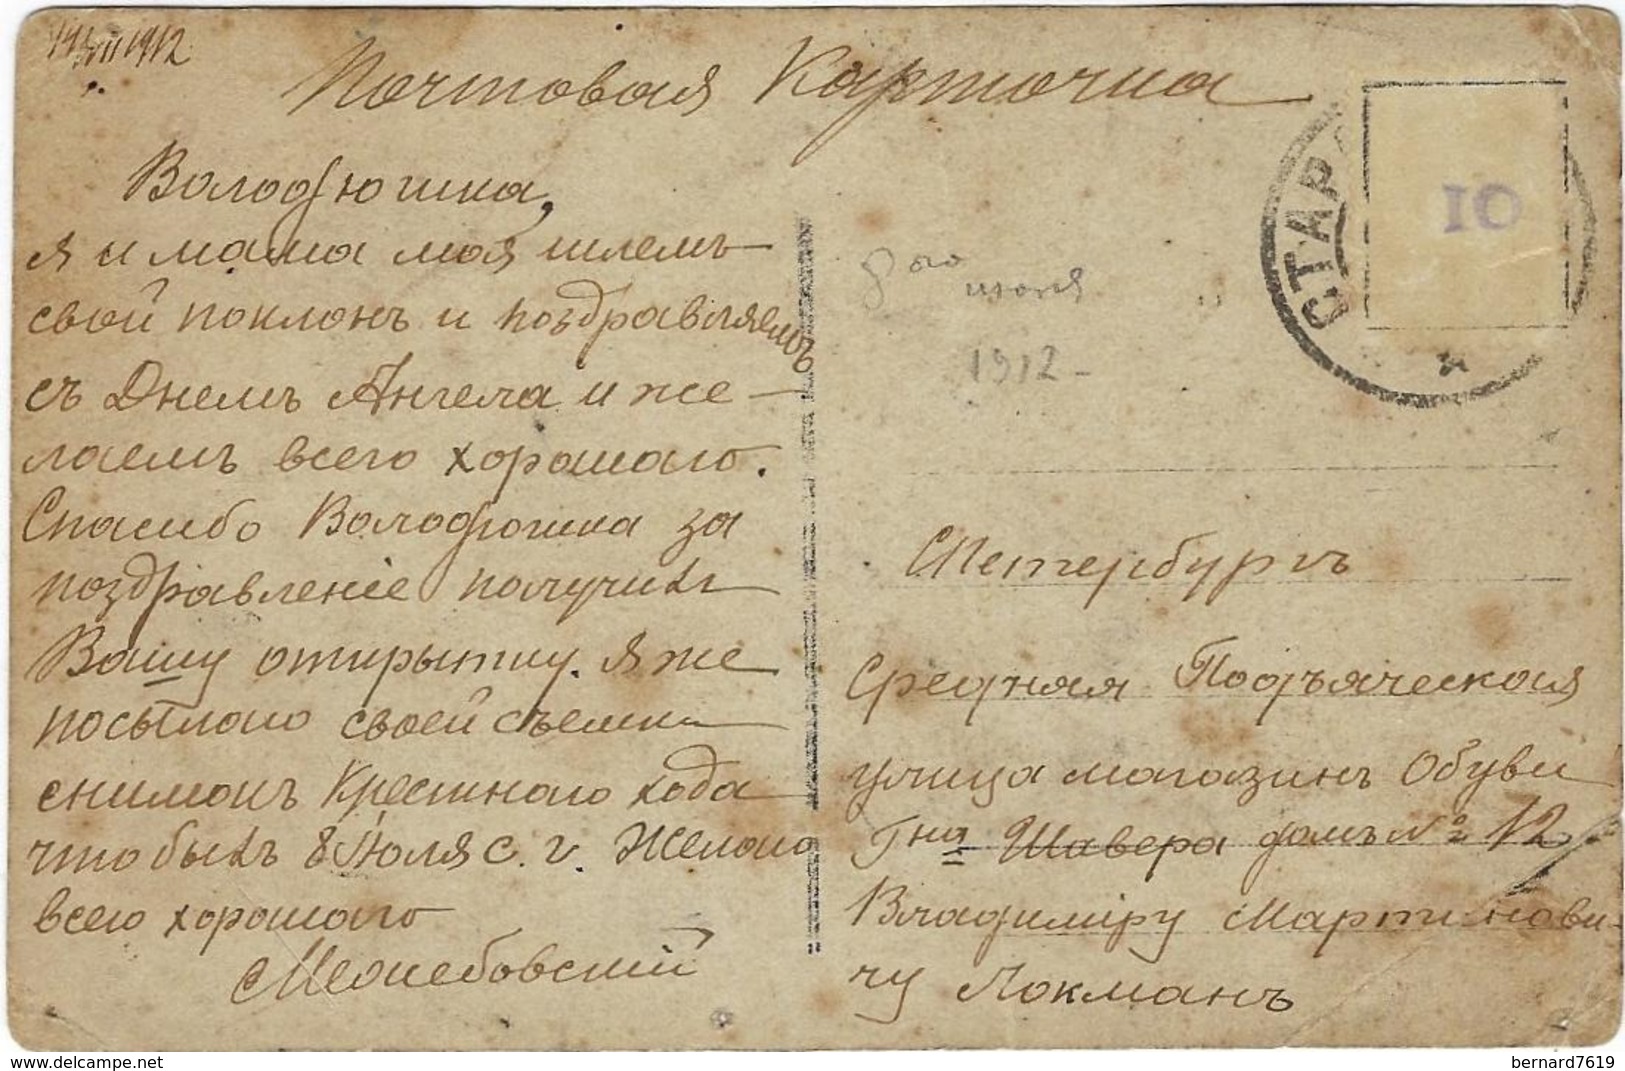 14 VII 1912
Почтовая Карточка
Володюшка,
я и мама моя шлемъ
свой поклонъ и поздравляемъ
съ Днемъ Ангела и же-
лаемъ всего хорошаго.
Спасибо Володюшка за
поздравленіе получилъ
Вашу открытку. Я же
посылаю своей съемки
снимокъ Крестнаго хода
что былъ 8 Іюля с. г. Желаю
всего хорошаго
СТАР
10
8ого
июля
1912-
С Петербургъ
Средняя Подъяческая
улица магазинъ Обуви
Гна Шавера домъ № 12
Владиміру Мартинови-
чу Локманъ
www.delcampe.net
bernard7619